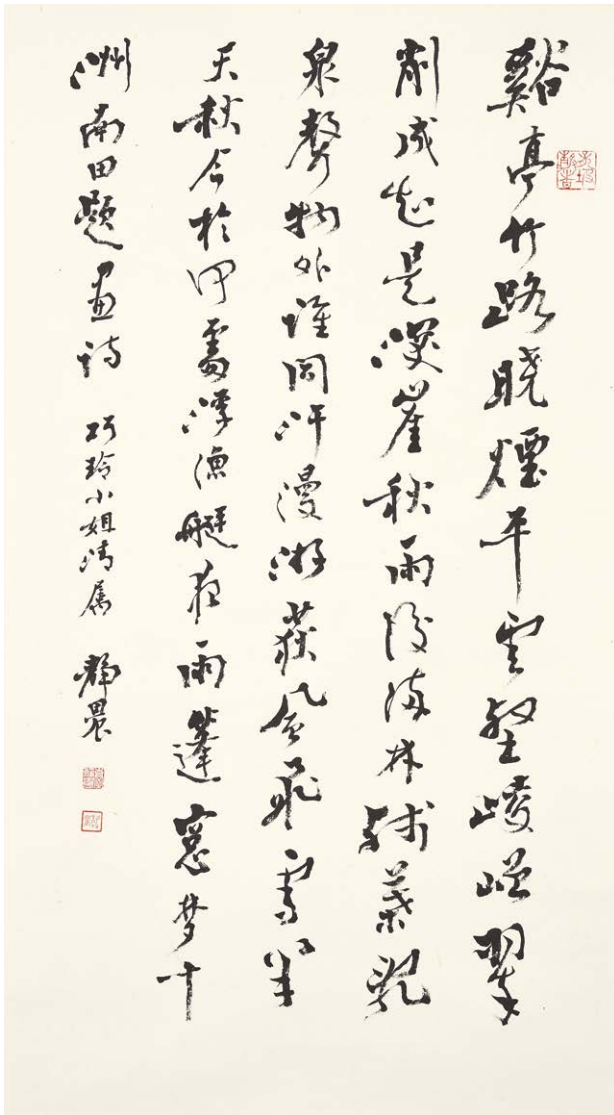 谿亭竹路曉煙平雲壑崚嶒翠
削成是深崖秋雨後滿林殘葉亂
泉聲物外誰同汗漫游荻風飛雪半
天秋今於何處浮漁艇夜雨篷窗夢十
洲南田題畫詩 巧玲小姐清屬 靜農